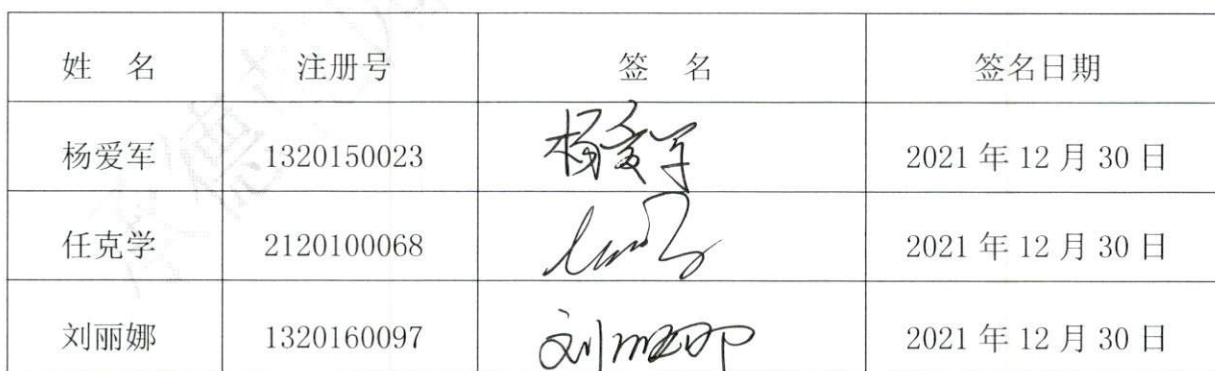 姓 名 注册号 签 名 签名日期
杨爱军 1320150023 杨爱军 2021年12月30日
任克学 2120100068 2021年12月30日
刘丽娜 1320160097 刘丽娜 2021年12月30日